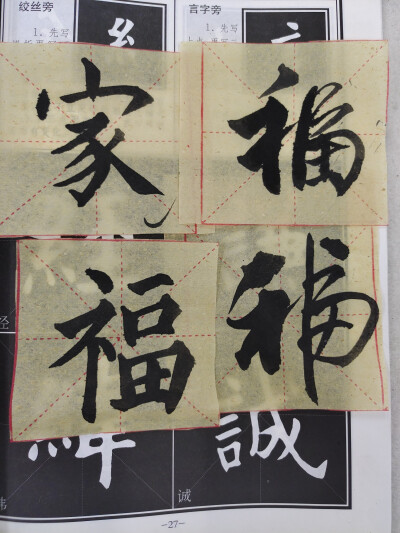 绞丝旁
言字旁
1. 先写
1. 先写
家福
福福
经
誠
诚
-27-